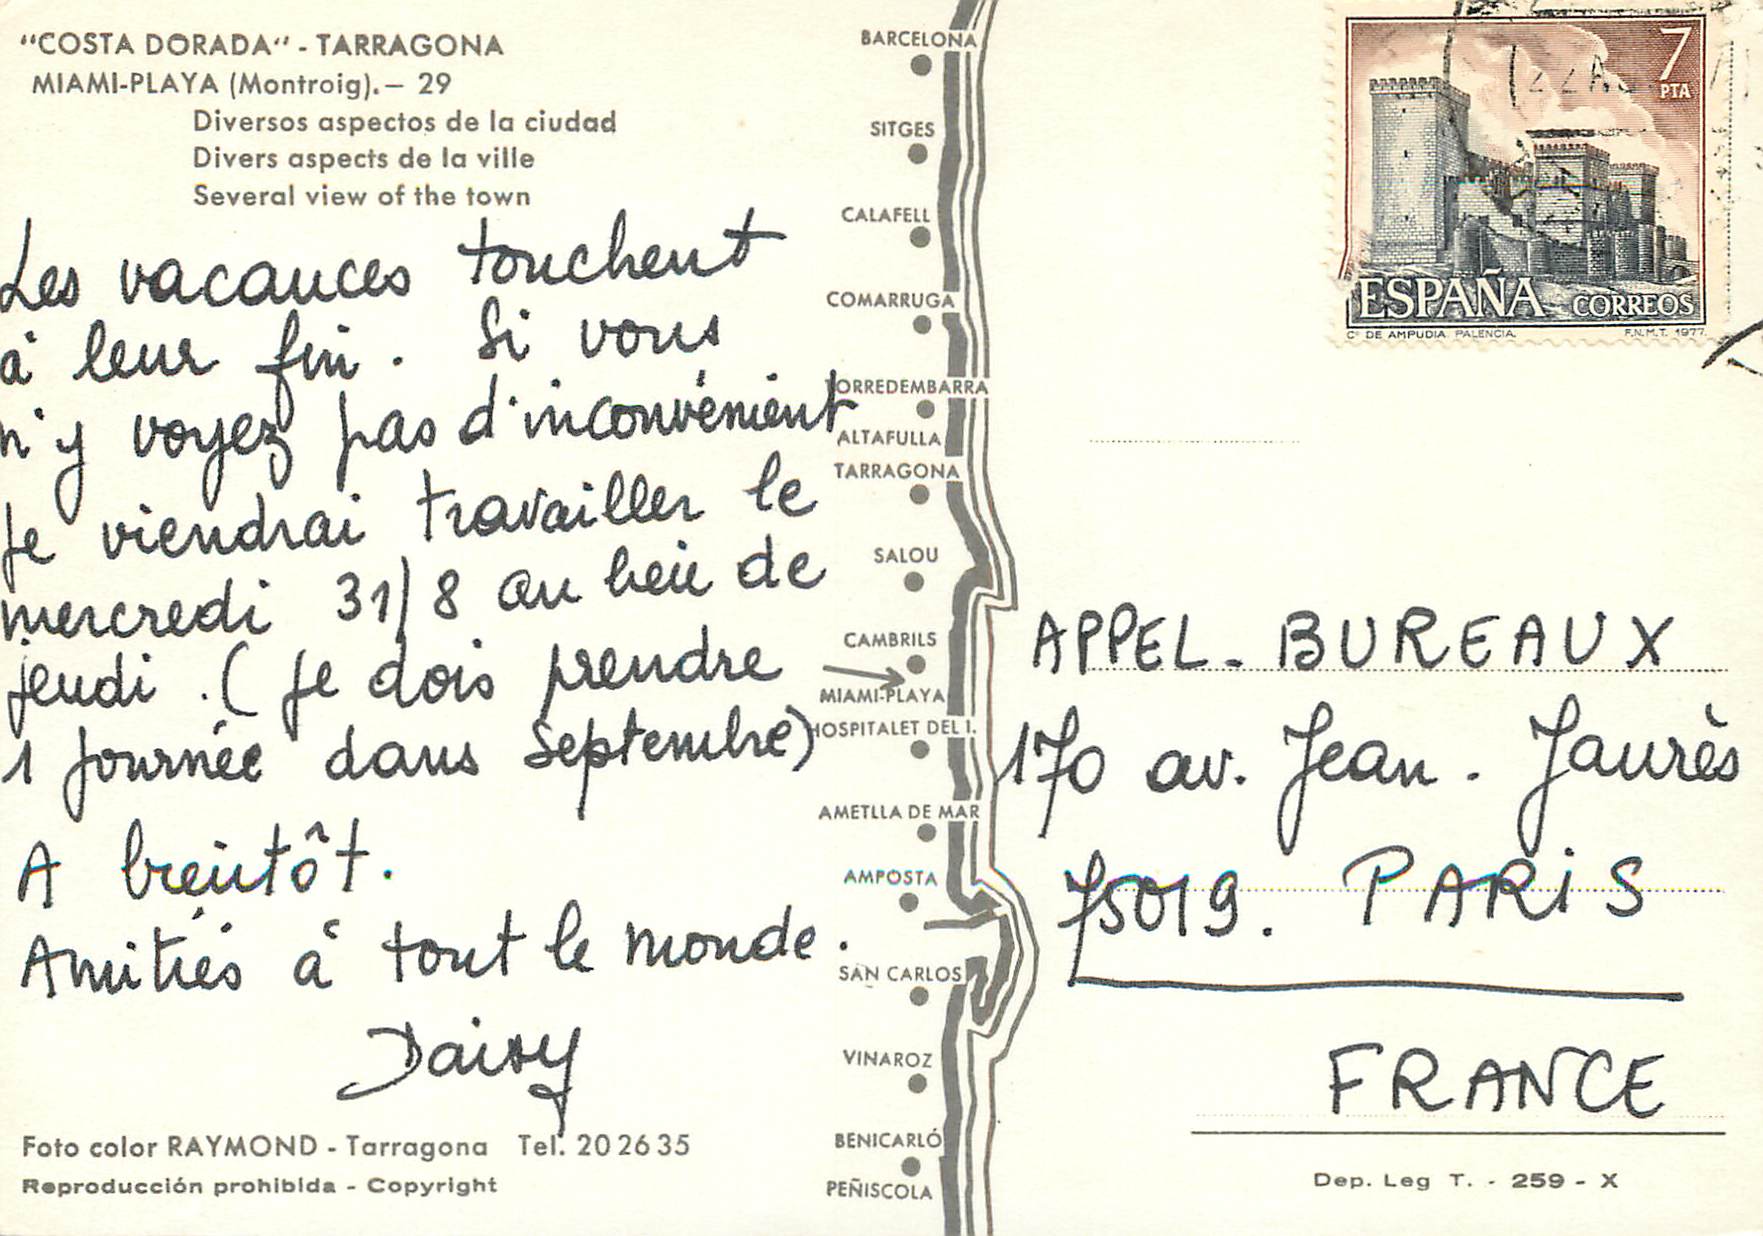 "COSTA DORADA" - TARRAGONA
MIAMI-PLAYA (Montroig).— 29
Diversos aspectos de la ciudad
Divers aspects de la ville
Several view of the town
Les vacances touchent
à leur fin. Si vous
n'y voyez pas d'inconvénient
je viendrai travailler le
mercredi 31/8 au lieu de
jeudi. (je dois prendre
1 journée dans septembre)
A bientôt.
Amitiés à tout le monde.
Daisy
Foto color RAYMOND - Tarragona Tel. 20 26 35
Reproducción prohibida - Copyright
BARCELONA
SITGES
CALAFELL
COMARRUGA
TORREDEMBARRA
ALTAFULLA
TARRAGONA
SALOU
CAMBRILS
MIAMI-PLAYA
HOSPITALET DEL I.
AMETLLA DE MAR
AMPOSTA
SAN CARLOS
VINAROZ
BENICARLÓ
PEÑISCOLA
7
PTA
ESPAÑA CORREOS
Cº DE AMPUDIA. PALENCIA. F.N.M.T. 1977
APPEL. BUREAUX
170 av. Jean. Jaurès
75019. PARIS
FRANCE
Dep. Leg T. - 259 - X